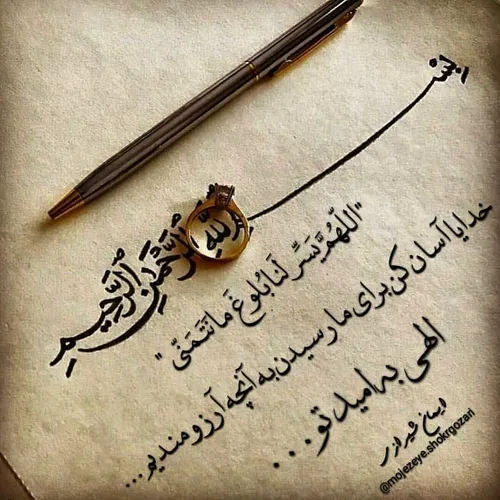 بِسْمِ اللّٰهِ الرَّحْمٰنِ الرَّحِيمِ
"اَللّٰهُمَّ يَسِّرْ لَنا بُلُوغَ ما نَتَمَنّى"
خدایا آسان کن برای ما رسیدن به آنچه آرزومندیم...
الهی به امید تو...
ایماغ شیرازی
@mojezeye.shokrgozari